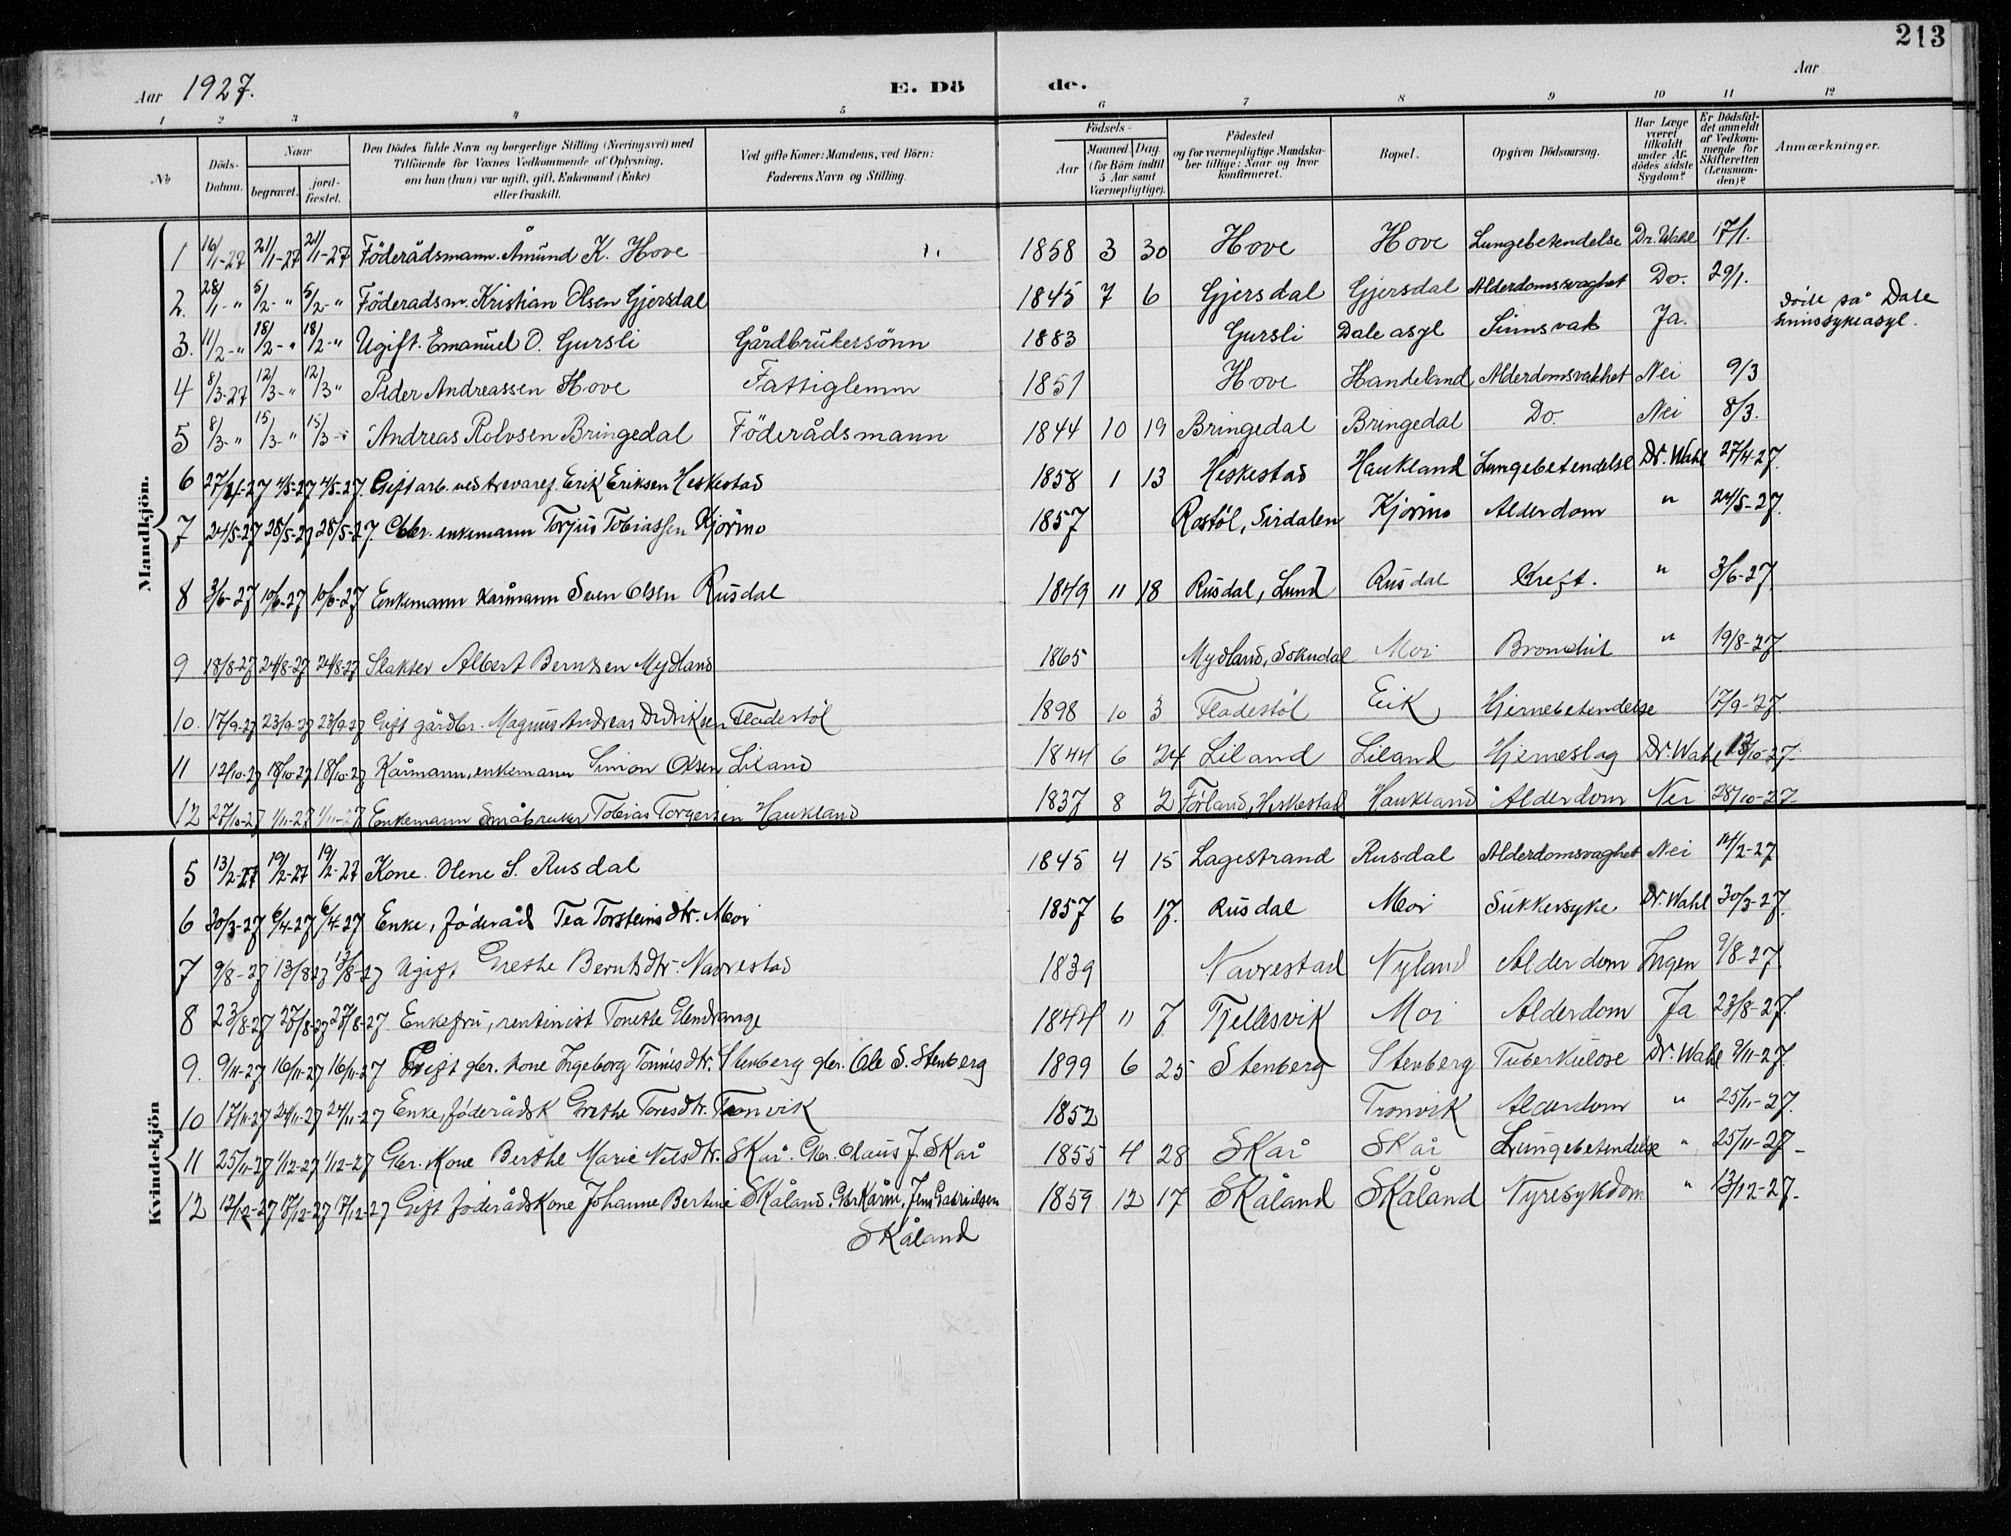 213
Aar 1927. E. Dö de. Aar
1 2 3 4 5 6 7 8 9 10 11 12
No Döds-Datum. Naar begravet. jord-fæstet. Den Dödes fulde Navn og borgerlige Stilling (Næringsvei) med Tilföiende for Voxnes Vedkommende af Oplysning, om han (hun) var ugift, gift, Enkemand (Enke) eller fraskilt. Ved gifte Koner: Mandens, ved Börn: Faderens Navn og Stilling. Födsels- Aar Maaned. Dag. (for Börn indtil 5 Aar samt Værnepligtige). Födested og for værnepligtige Mandskaber tillige: Naar og hvor konfirmeret. Bopæl. Opgiven Dödsaarsag. Har Læge været tilkaldt under Afdödes sidste Sygdom? Er Dödsfaldet anmeldt af Vedkommende for Skifteretten (Lensmanden)? Anmærkninger.
Mandkjön.
1 16/1-27 21/1-27 21/1-27 Föderådsmann. Åmund K. Hove 1858 3 30 Hove Hove Lungebetendelse Dr. Wahl 17/1.
2. 28/1-" 5/2-" 5/2-" Föderadsm. Kristian Olsen Gjersdal 1845 7 6 Gjersdal Gjersdal Alderdomssvaghet Do. 29/1.
3. 11/2-" 18/2-" 18/2-" Ugift. Emanuel O. Gursli Gårdbrukersönn 1883 Gursli Dale asyl Sinnsvak Ja. Döde på Dale sinnssykeasyl.
4 8/3-27 12/3-" 12/3" Peder Andreassen Hove Fattiglemm 1851 Hove Handeland Alderdomsvakhet Nei 9/3
5 8/3-" 15/3-" 15/3-" Andreas Rolvsen Bringedal Föderådsmann 1844 10 19 Bringedal Bringedal Do. Nei 8/3.
6 27/4-27 4/5-27 4/5-27. Gift arb. ved trevaref. Erik Eriksen Heskestad 1858 1 13 Heskestad Haukland Lungebetendelse Dr. Wahl 27/4-27.
7 24/5-27 28/5-27 28/5-27. Gbr. enkemann Torjus Tobiassen Kjörmo 1857 Rostöl, Sirdalen Kjörmo Alderdom " 24/5-27.
8 3/6-27 10/6-27 10/6-27 Enkemann kårmann Sven Olsen Rusdal 1849 11 18 Rusdal, Lund Rusdal Kreft. " 3/6-27.
9 18/8-27 24/8-27 24/8-27 Slakter Albert Berntsen Mydland 1865 Mydland, Sokndal Moi Bronchit " 19/8-27.
10. 17/9-27 23/9-27 23/9-27 Gift gårdbr. Magnus Andreas Didriksen Fladestöl 1898 10 3 Fladestöl Eik Hjernebetendelse 17/9-27.
11 12/10-27 18/10-27 18/10-27 Kårmann, enkemann Simon Olsen Liland 1844 6 24 Liland Liland Hjerneslag Dr. Wahl 13/10-27.
12 27/10-27 1/11-27 1/11-27 Enkemann småbruker Tobias Torgersen Haukland 1837 8 2 Förland, Heskestad Haukland Alderdom Nei 28/10-27.
Kvindekjön
5 13/2-27 19/2-27 19/2-27 Kone. Olene S. Rusdal 1845 4 15 Lagestrand Rusdal Alderdomsvaghet Nei 14/2-27
6 30/3-27 6/4-27 6/4-27 Enke, föderåd Tea Torsteinsdtr. Moi 1857 6 17. Rusdal Moi Sukkersyke Dr. Wahl 30/3-27.
7 9/8-27 13/8-27 13/8-27 Ugift Grethe Berntsdtr. Navrestad 1839 Navrestad Nyland Alderdom Ingen 9/8-27.
8 23/8-27 27/8-27 27/8-27. Enkefru, rentinist Tonethe Glendrange 1844 11 7 Fjellesvik Moi Alderdom Ja 23/8-27.
9. 9/11-27 16/11-27 16/11-27 Gift gbr. kone Ingeborg Tönnesdtr. Stenberg gbr. Ole S. Stenberg 1899 6 25 Stenberg Stenberg Tuberkulose Dr. Wahl 9/11-27.
10 17/11-27 24/11-27 24/11-27 Enke, föderådsk Grethe Toresdtr. Tronvik 1852 Tronvik Alderdom " 25/11-27.
11 25/11-27 1/12-27 1/12-27 Gbr. Kone Berthe Marie Nilsdtr. Skår. Gbr. Olaus J. Skår 1855 4 28 Skår Skår Lungebetendelse " 25/11-27-
12 12/12-27 17/12-27 17/12-27 Gift föderådskone Johanne Bertine Skåland. Gbr Kårm. Jens Gabrielsen 1859 12 17 Skåland Skåland Nyresykdom " 13/12-27.
Skåland